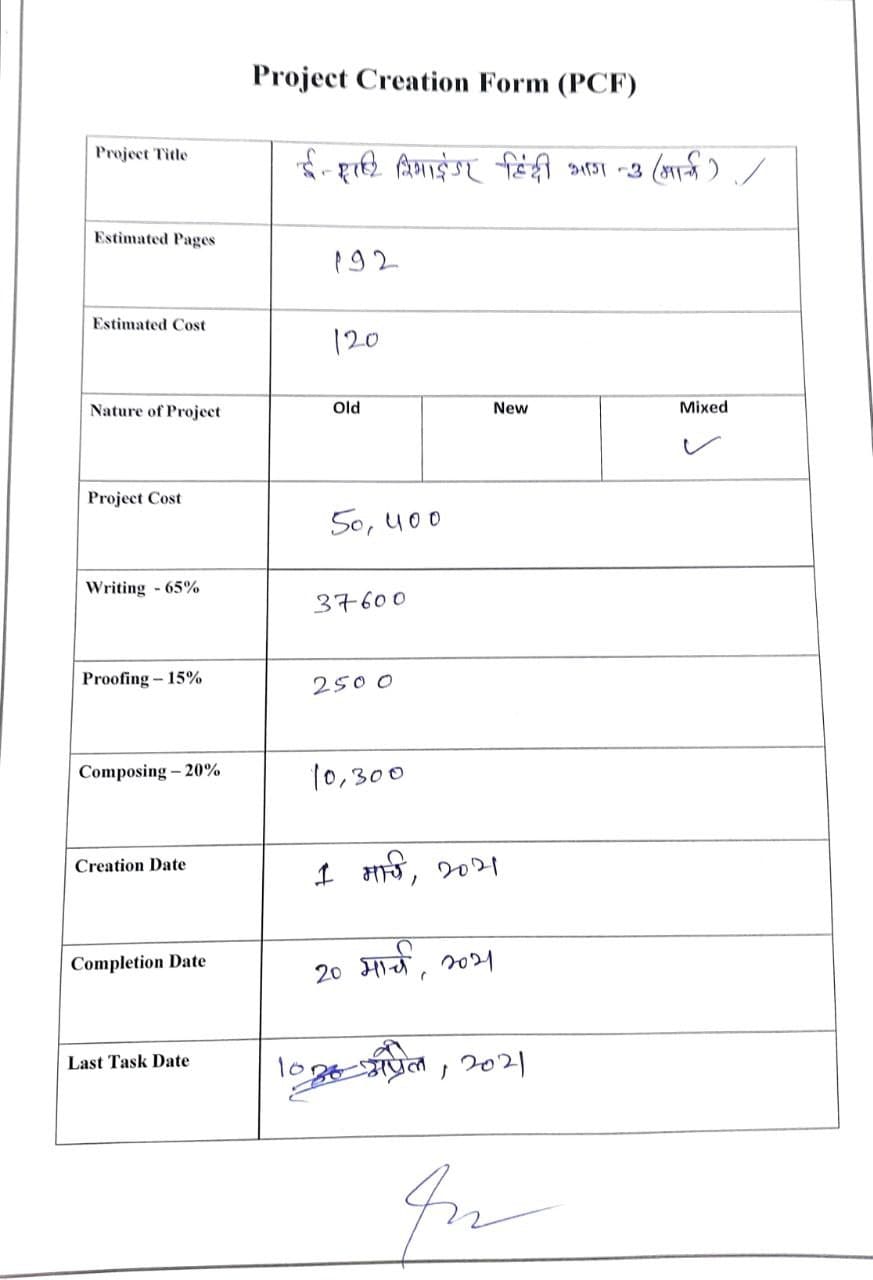 Project Creation Form (PCF)
Project Title ई- हिंदी भाग -3 (मार्च)
Estimated Pages 192
Estimated Cost 120
Nature of Project Old New Mixed ✓
Project Cost 50,400
Writing - 65% 37600
Proofing – 15% 2500
Composing – 20% 10,300
Creation Date 1 मार्च, 2021
Completion Date 20 मार्च, 2021
Last Task Date 10 अप्रैल, 2021